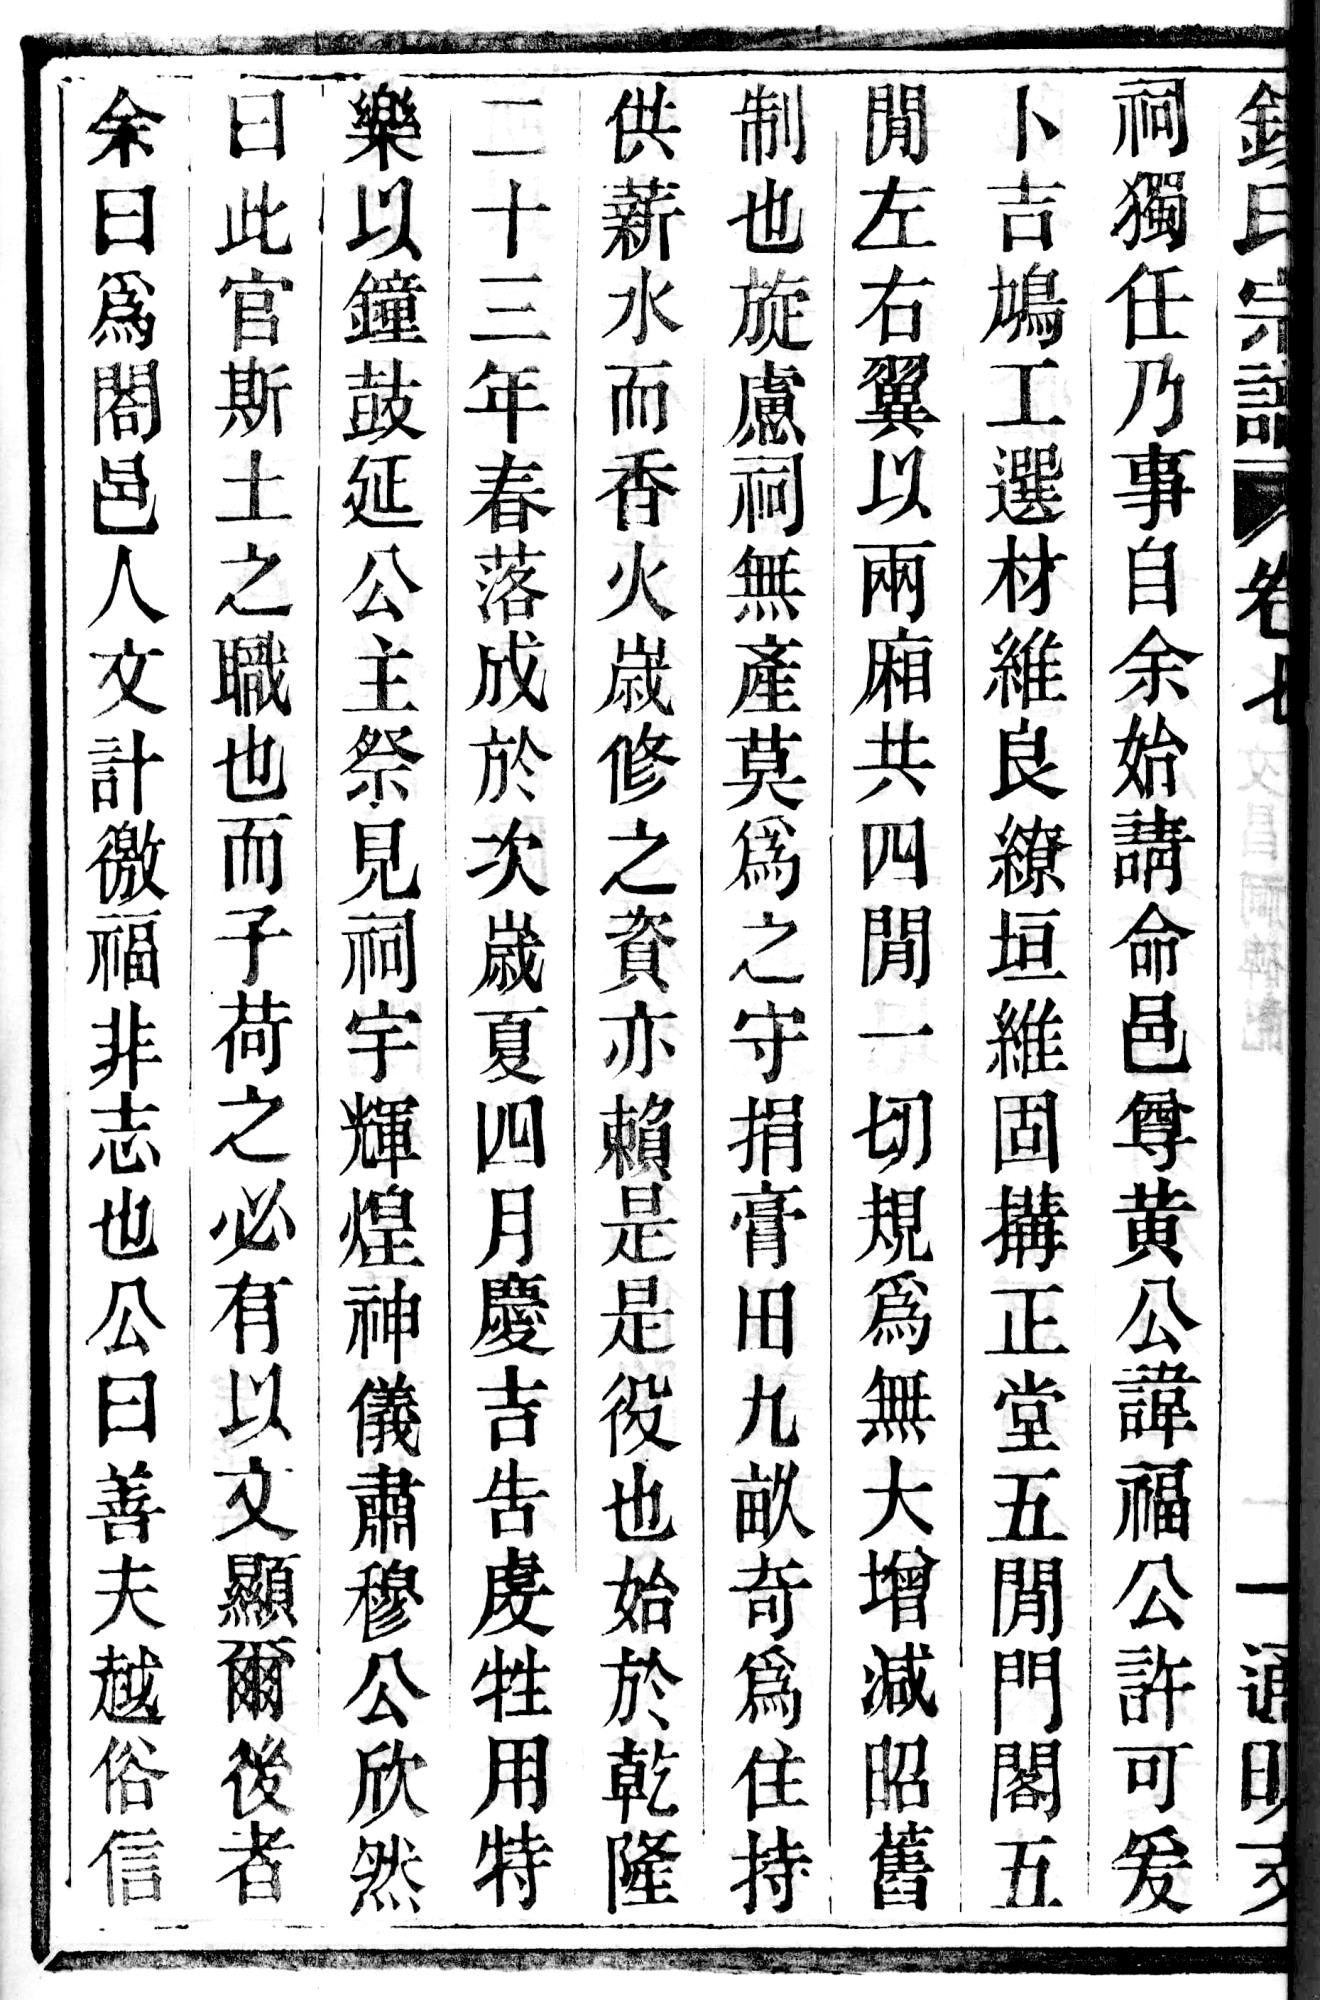 氏宗譜 卷七 一 通明支
祠獨任乃事自余始請命邑尊黄公諱福公許可爰
卜吉鳩工選材維良繚垣維固搆正堂五閒門閣五
閒左右翼以兩廂共四閒一切規爲無大增減昭舊
制也旋慮祠無產莫爲之守捐膏田九畝奇爲住持
供薪水而香火嵗修之資亦賴是是役也始於乾隆
二十三年春落成於次嵗夏四月慶吉告虔牲用特
樂以鐘鼓延公主祭見祠宇輝煌神儀肅穆公欣然
曰此官斯土之職也而子荷之必有以文顯爾後者
余曰爲閤邑人文計徼福非志也公曰善夫越俗信